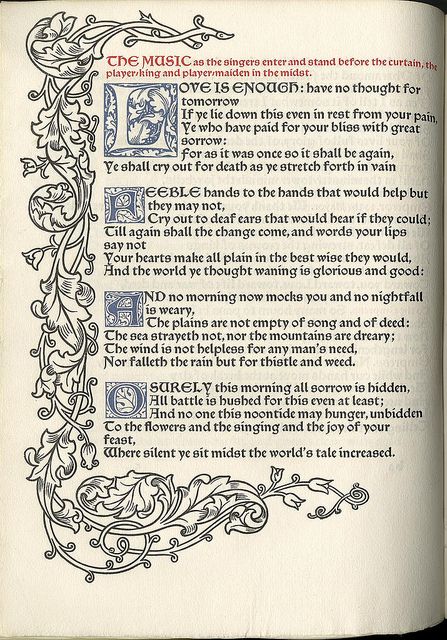 THE MUSIC as the singers enter and stand before the curtain, the
player-king and player-maiden in the midst.
LOVE IS ENOUGH: have no thought for
tomorrow
If ye lie down this even in rest from your pain,
Ye who have paid for your bliss with great
sorrow:
For as it was once so it shall be again,
Ye shall cry out for death as ye stretch forth in vain
FEEBLE hands to the hands that would help but
they may not,
Cry out to deaf ears that would hear if they could;
Till again shall the change come, and words your lips
say not
Your hearts make all plain in the best wise they would,
And the world ye thought waning is glorious and good:
AND no morning now mocks you and no nightfall
is weary,
The plains are not empty of song and of deed:
The sea strayeth not, nor the mountains are dreary;
The wind is not helpless for any man's need,
Nor falleth the rain but for thistle and weed.
O SURELY this morning all sorrow is hidden,
All battle is hushed for this even at least;
And no one this noontide may hunger, unbidden
To the flowers and the singing and the joy of your
feast,
Where silent ye sit midst the world's tale increased.